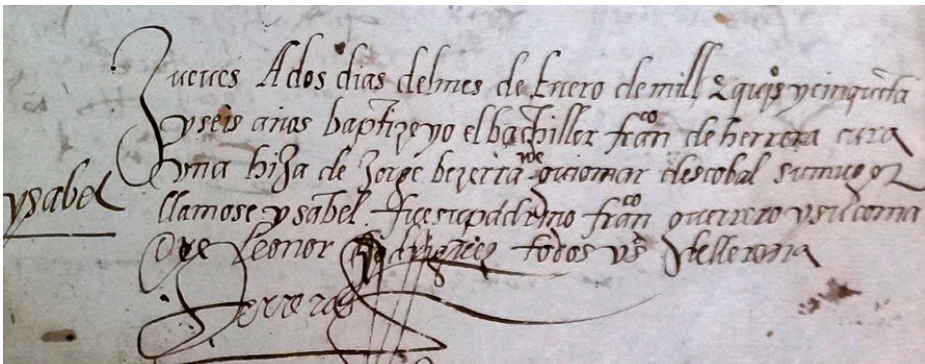 Jueves A dos dias del mes de Enero de mill & quis y cinquēta
y seis años baptize yo el bachiller franco de herrera cura
una hija de Jorge bezerra y de guiomar descobal su muger
ysabel
llamose ysabel fue su padrino franco guerrero y su coma
dre Leonor todos vs de llerena
Herreras